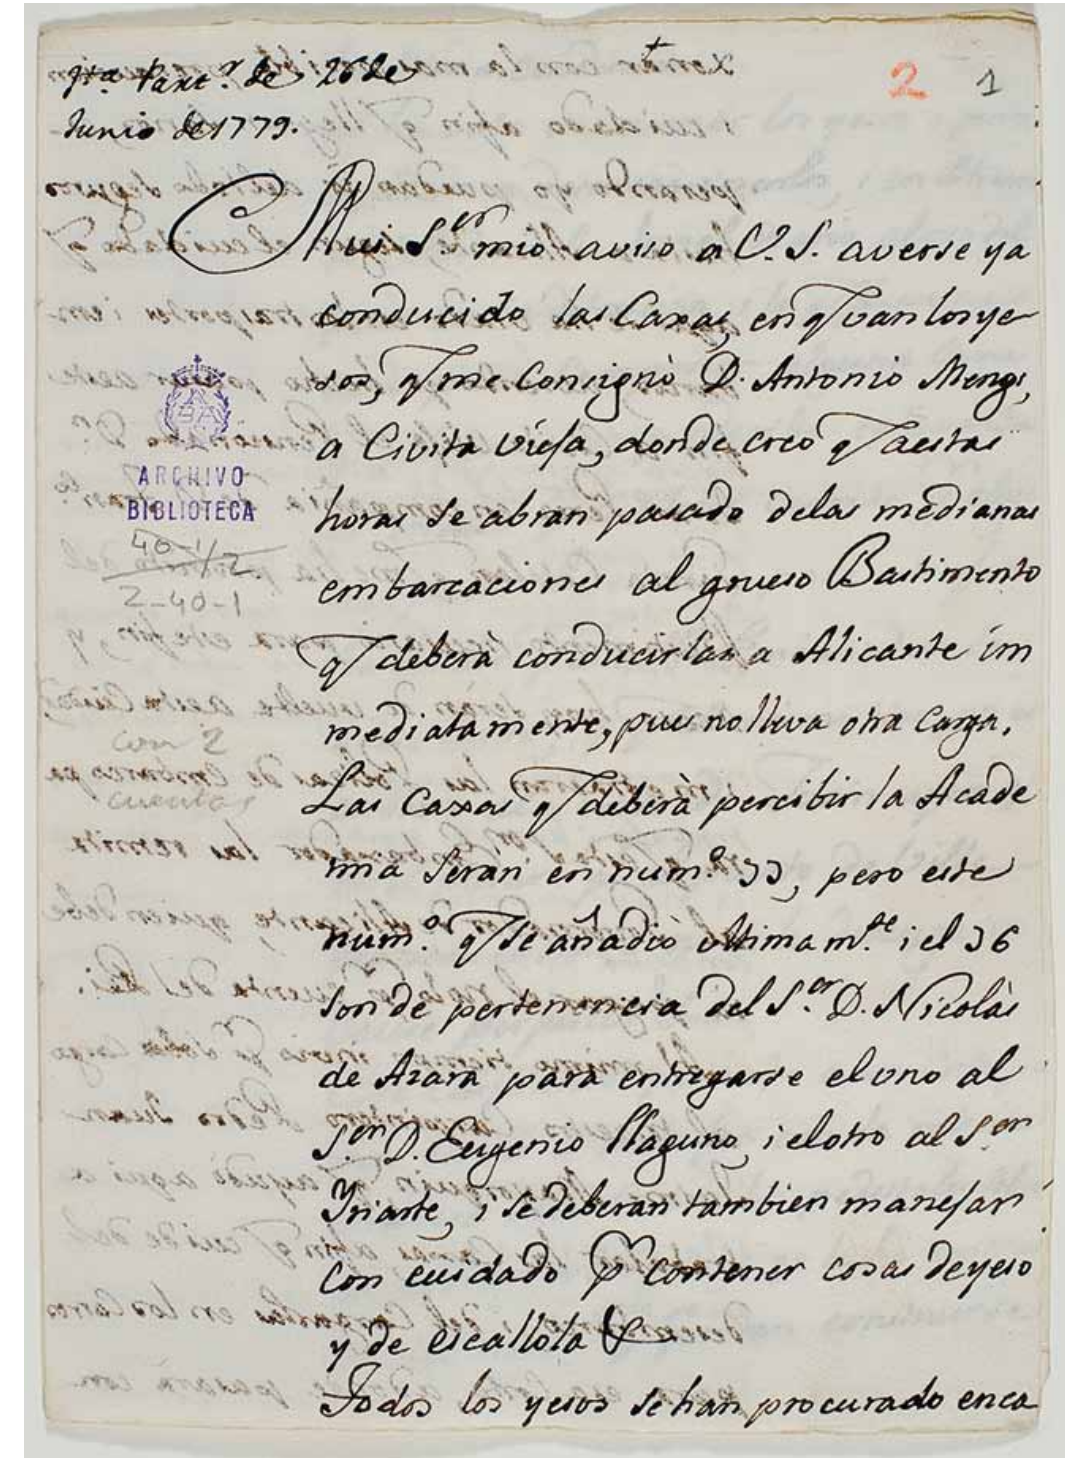 Jta. Part.r de 26 de
Junio de 1779.
2 1
Mui S.or mio aviso a V.S. averse ya
conducido las Caxas, en q van los ye
sos, q me Consignò D. Antonio Mengs,
a Civita Vieja, donde creo q a estas
horas se abran pasado de las medianas
embarcaciones al grueso Bastimento
q deberà conducirlas a Alicante im
mediatamente, pues no lleva otra Carga.
Las Caxas q deberà percibir la Acade
mia Seran en num.o 33, pero este
num.o q se añadiò ultimam.te i el 36
son de pertenencia del S.or D. Nicolàs
de Azara para entregarse el uno al
S.or D. Eugenio Llaguno, i el otro al S.or
Yriarte, i se deberan tambien manejar
con cuidado p contener cosas de yeso
y de escallola &
Todos los yesos se han procurado enca
ABA
ARCHIVO
BIBLIOTECA
40-1/2
2-40-1
con 2
cuentas